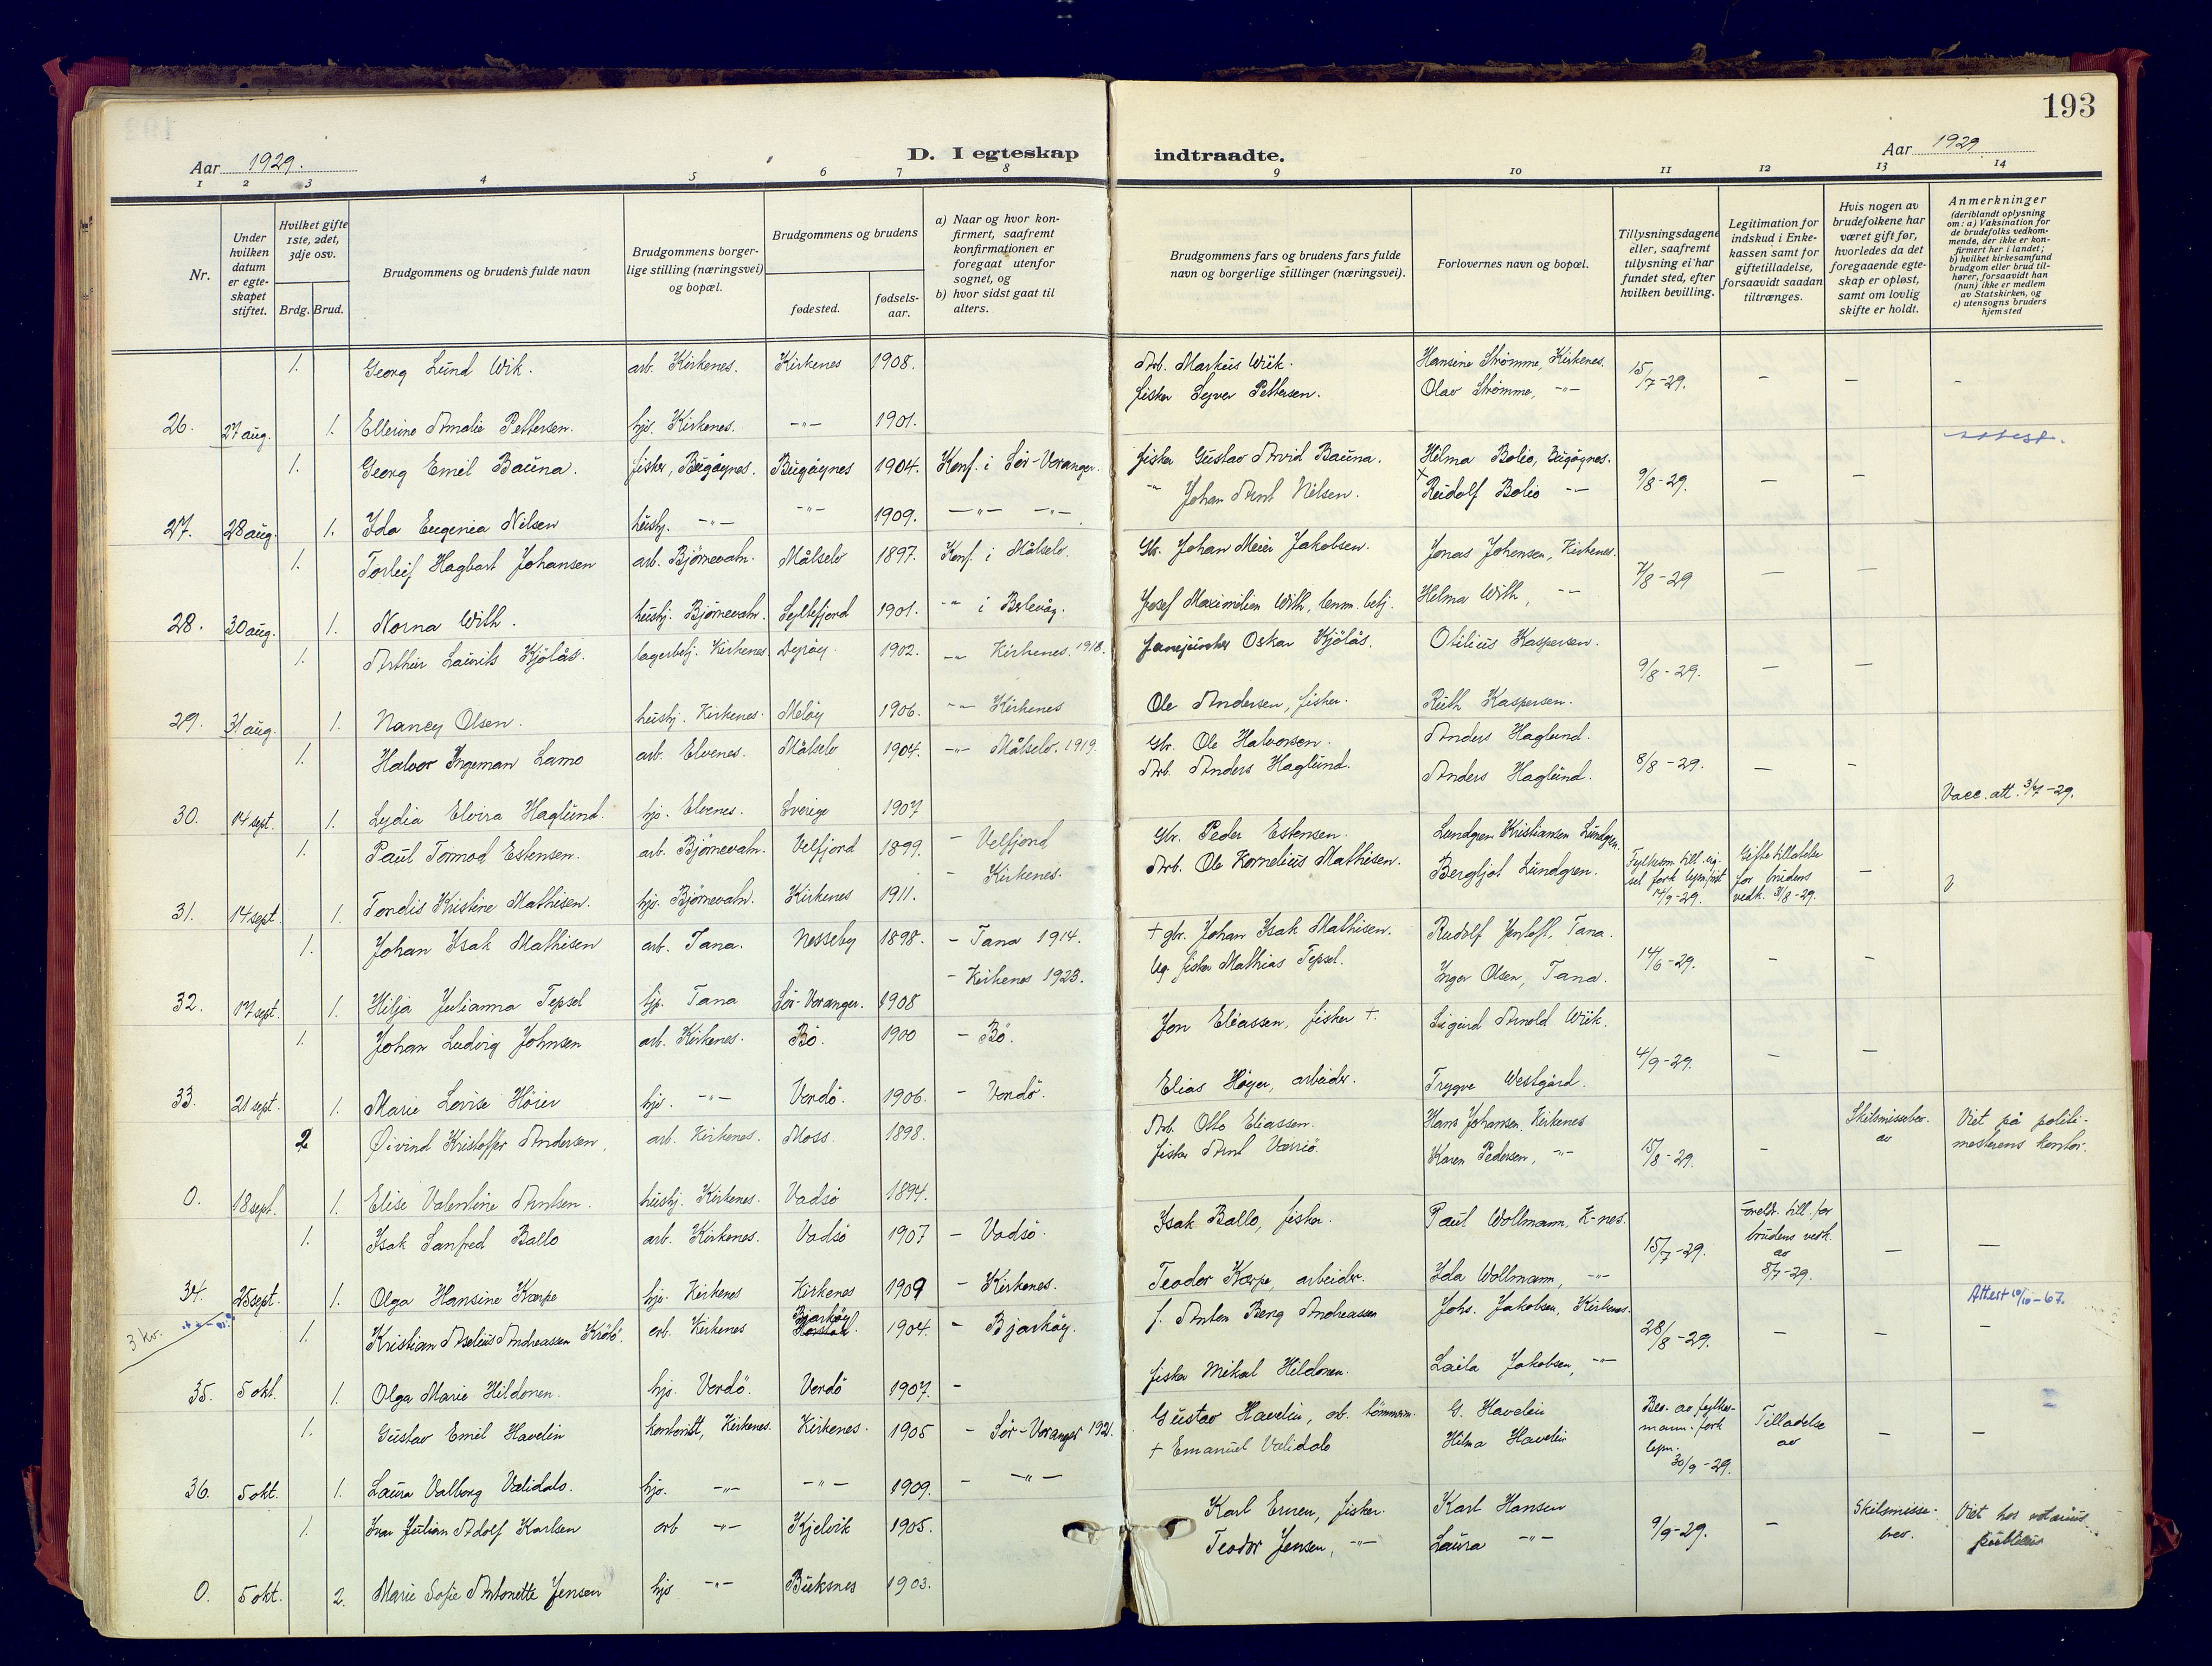 193
Aar 1929.
D. I egteskap indtraadte.
Aar 1929
1 2 3 4 5 6 7 8 9 10 11 12 13 14
Nr.
Under hvilken datum er egteskapet stiftet.
Hvilket gifte 1ste, 2det, 3dje osv.
Brdg. Brud.
Brudgommens og brudens fulde navn
Brudgommens borgerlige stilling (næringsvei) og bopæl.
Brudgommens og brudens
fødested.
fødselsaar.
a) Naar og hvor konfirmert, saafremt konfirmationen er foregaat utenfor sognet, og
b) hvor sidst gaat til alters.
Brudgommens fars og brudens fars fulde navn og borgerlige stillinger (næringsvei).
Forlovernes navn og bopæl.
Tillysningsdagene eller, saafremt tillysning ei har fundet sted, efter hvilken bevilling.
Legitimation for indskud i Enkekassen samt for giftetilladelse, forsaavidt saadan tiltrænges.
Hvis nogen av brudefolkene har været gift før, hvorledes da det foregaaende egteskap er opløst, samt om lovlig skifte er holdt.
Anmerkninger
(deriblandt oplysning om: a) Vaksination for de brudefolks vedkommende, der ikke er konfirmert her i landet; b) hvilket kirkesamfund brudgom eller brud tilhører, forsaavidt han (hun) ikke er medlem av Statskirken, og c) utensogns bruders hjemsted
1. Georg Lund Wik. arb. Kirkenes. Kirkenes 1908. Arb. Markus Wiik. Hansine Strømme, Kirkenes. 15/7-29. — — —
fisker Sejver Pettersen. Olav Strømme, -"-
26. 27 aug. 1. Ellerine Amalie Pettersen. hjs. Kirkenes. -"- 1901.
1. Georg Emil Bauna. fisker, Bugøynes. Bugøynes 1904. Konf. i Sør-Varanger. fisker Gustav Arvid Bauna. Hilma Bolio, Bugøynes. 9/8-29. — —
" Johan Arnt Nilsen. Rudolf Bolio -"-
27. 28 aug. 1. Ida Eugenia Nilsen hushj. -"- -"- 1909. -"- -"-
1. Torleif Hagbart Johansen arb. Bjørnevatn. Målselv 1897. Konf. i Målselv. Gbr. Johan Meier Jakobsen. Jonas Johensen, Kirkenes. 7/8-29 — —
28. 30 aug. 1. Norna With. hushj. Bjørnevatn. Syltefjord 1901. -"- i Berlevåg. Josef Maximilian With, Helma With, -"-
1. Arthur Laurits Kjölås. lagerbetj. Kirkenes Dyröy. 1902. -"- Kirkenes. 1918. Oskar Kjölås. Otilius Kaspersen. 9/8-29. — —
29. 31 aug. 1. Nancy Olsen. hushj. Kirkenes. Meløy 1906. -"- Kirkenes Ole Andersen, fisker. Ruth Kaspersen.
1. Halvor Ingeman Lamo arb. Elvenes. Målselv 1904. -"- Målselv. 1919. Gbr. Ole Halvorsen. Anders Haglund. 8/8-29. — —
Arb. Anders Haglund. Anders Haglund. Vacc. att. 3/7-29.
30. 14 sept. 1. Lydia Elvira Haglund. hjs. Elvenes. Sverige 1907
1. Paul Tormod Estensen. arb. Bjørnevatn. Velfjord 1899. - Velfjord Gbr. Peder Estensen. Lundgren Kristiansen Lundgren.
- Kirkenes. Arb. Ole Kornelius Mathisen. Bergljot Lundgren. 14/9-29. Giftetillatelse for brudens vedk. 31/8-29. —
31. 14 sept. 1. Tordis Kristine Mathisen. hjs. Bjørnevatn. Kirkenes 1911.
1. Johan Isak Mathisen arb. Tana. Nesseby 1898. - Tana 1914. + gbr. Johan Isak Mathisen. Rudolf Jentoft, Tana. 14/6-29. — —
- Kirkenes 1923. fisker Mathias Tepsel. Inger Olsen, Tana.
32. 17 sept. 1. Hilja Julianna Tepsel hjs. Tana Sør-Varanger. 1908
1. Johan Ludvig Johnsen arb. Kirkenes. Bö. 1900 - Bö. Jon Eliassen, fisker +. Sigurd Arnold Wiik. 4/9-29. — —
33. 21 sept. 1. Marie Lovise Höier hjs. -"- Vardö. 1906. - Vardö. Elias Höyer, arbeider. Trygve Westgård.
2 Øivind Kristoffer Andersen, arb. Kirkenes. Moss. 1898. Arb. Otto Eliassen. Hans Johansen, Kirkenes 15/8-29. — Skilsmissebev. av Viet på politimesterens kontor.
fisker Arnt Karen Pedersen, -"-
0. 18 sept. 1. Elise Valentine Arntsen. hushj. Kirkenes. Vadsö 1894.
1. Isak Sanfred Ballo arb. Kirkenes. Vadsö 1907 - Vadsö. Isak Ballo, fisker. Paul Wollmann, K-nes. 15/7-29. Foreldr. till. for brudens vedk. av 8/7-29. — —
34. 25 sept. 1. Olga Hansine Kærpe hjs. Kirkenes Kirkenes 1909 - Kirkenes. Teodor Kærpe, arbeider. Ida Wollmann, -"-
Attest 10/10-67.
3 kr.
1. Kristian Aselius Andreassen Kröló. arb. Kirkenes Bjarköy Harstad. 1904. - Bjarköy. f. Anton Berg Andreassen Johs. Jakobsen, Kirkenes. 28/8-29. — — —
35. 5 okt. 1. Olga Marie Hildonen. hjs. Vardö. Vardö 1907. - fisker Mikal Hildonen. Laila Jakobsen, -"-
1. Gustav Emil Havelin kontorist, Kirkenes. Kirkenes. 1905 - Sör-Varanger 1921. Gustav Havelin, G. Havelin Bev. av fylkesmann. 30/9-29. Tilladelse av — —
+ Emanuel Validalo Hilma Havelin
36. 5 okt. 1. Laura Valborg Validalo. hjs. -"- -"- 1909. - -"-
1. Ivar Julian Adolf Karlsen arb -"- Kjelvik 1905. Karl fisker. Karl Hansen 9/9-29. — Skilsmissebev. Viet hos notarius publicus
Teodor Jensen, -"- Laura -"-
0. 5 okt. 2. Marie Sofie Antonette Jensen hjs -"- Buksnes 1903.